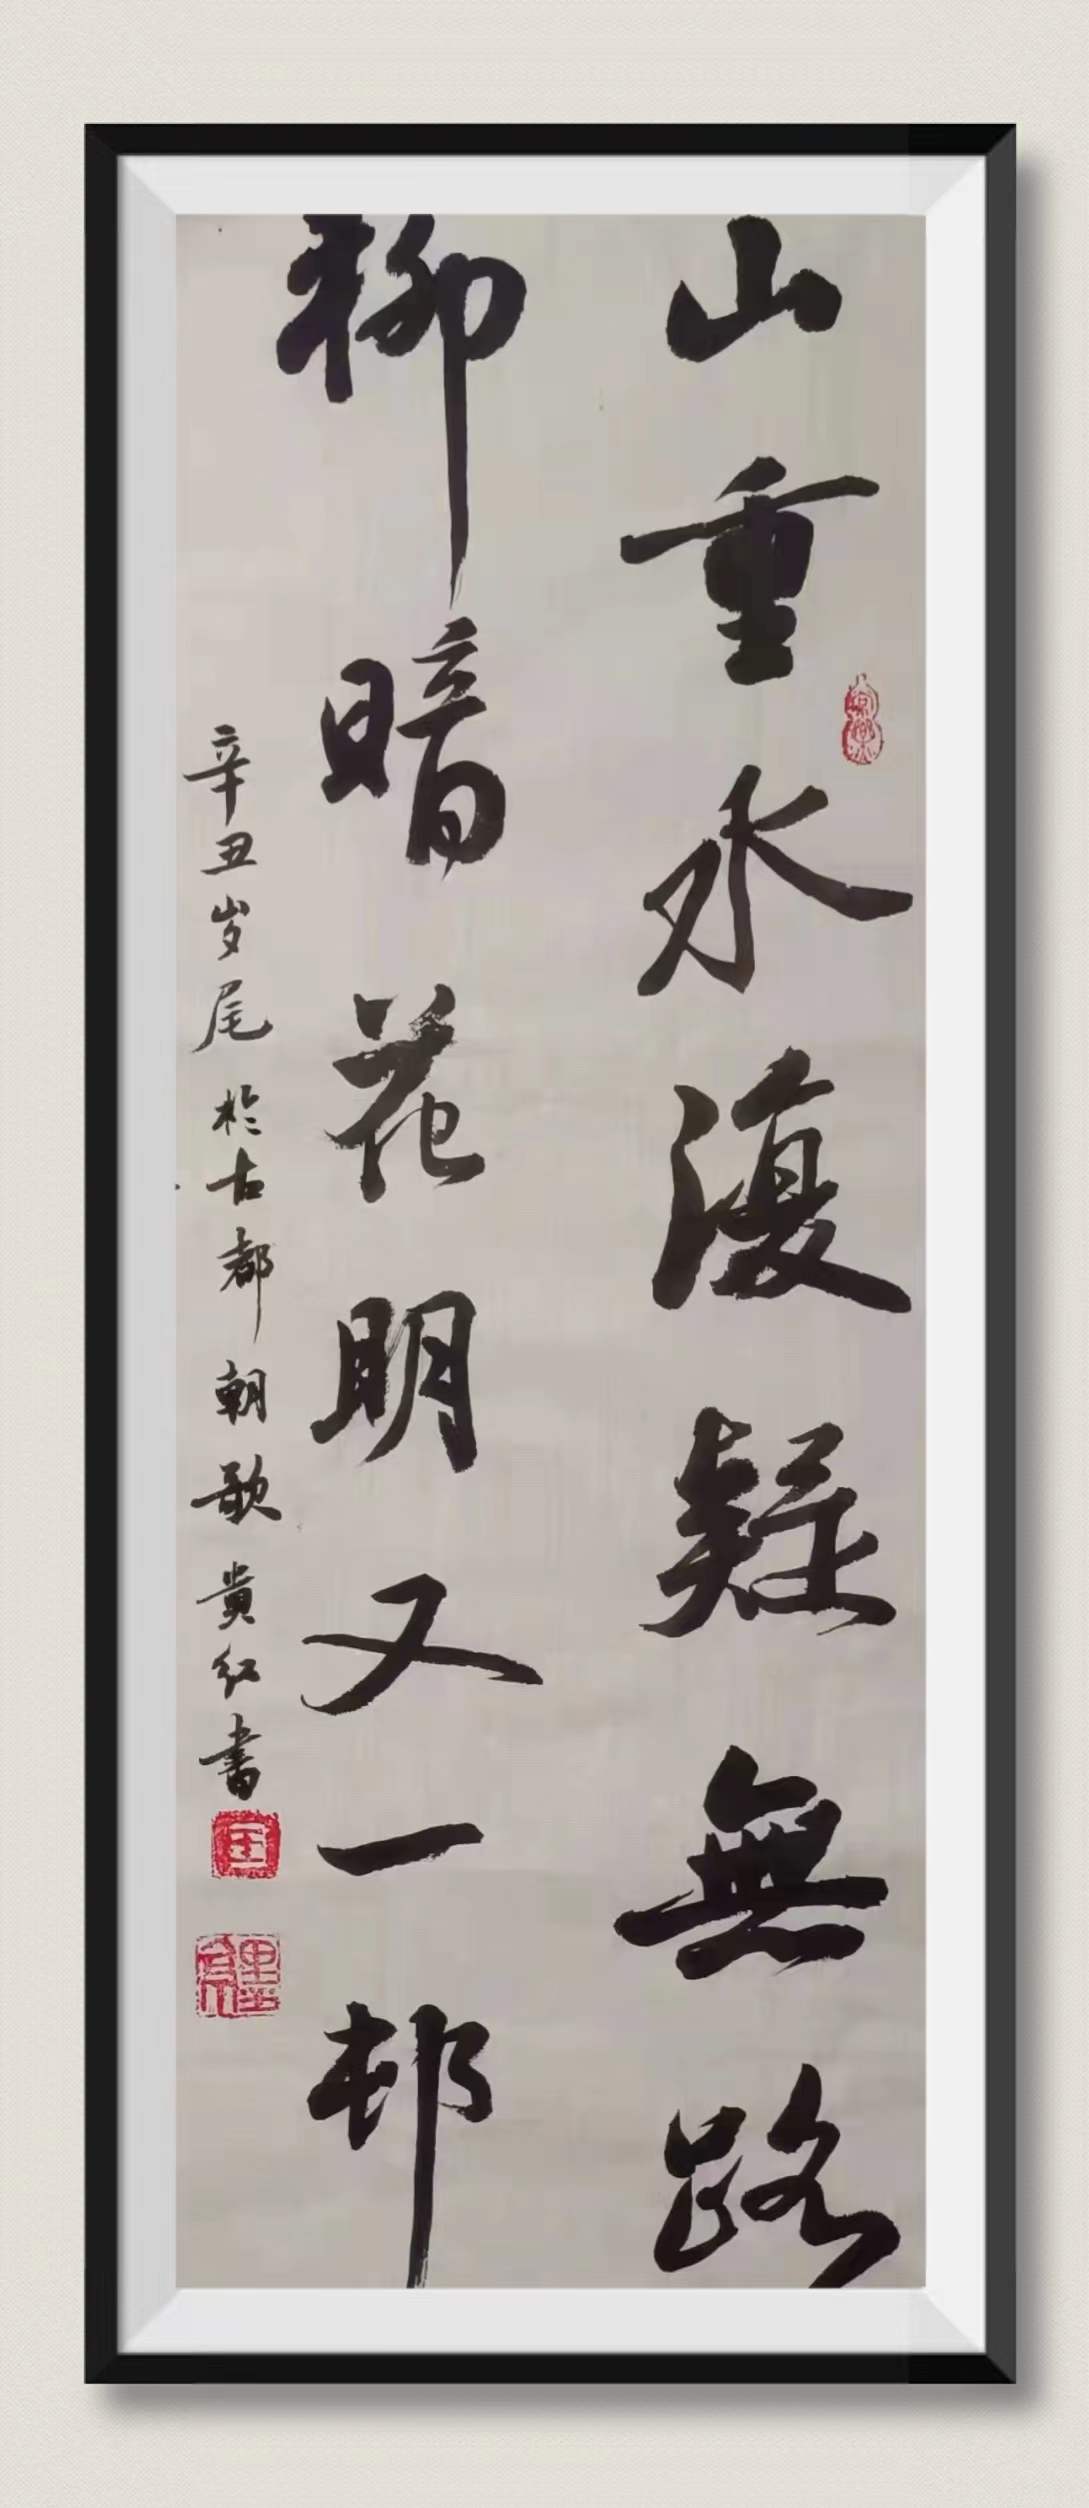 山重水澓疑無路
柳暗花明又一邨
辛丑岁尾於古都朝歌贵红書